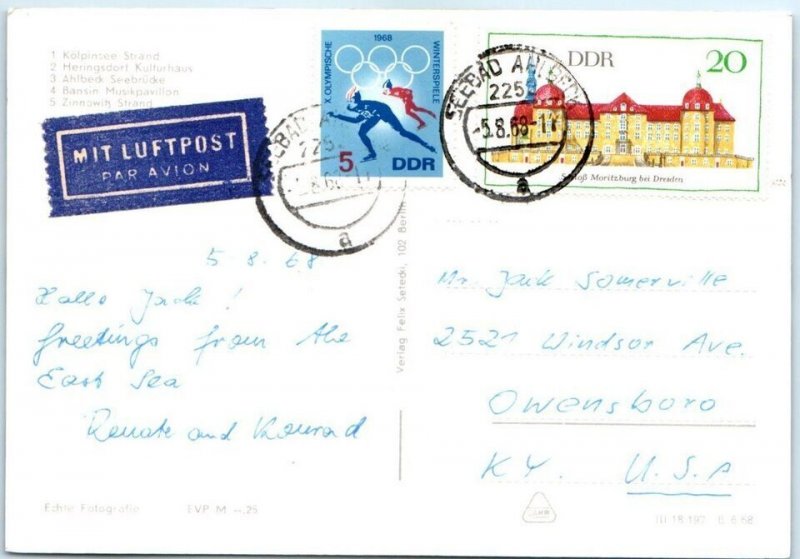 1 Kölpinsee Strand
2 Heringsdorf Kulturhaus
3 Ahlbeck Seebrücke
4 Bansin Musikpavillon
5 Zinnowitz Strand
MIT LUFTPOST
PAR AVION
1968
X. OLYMPISCHE
WINTERSPIELE
5 DDR
DDR 20
Schloß Moritzburg bei Dresden
SEEBAD AHLBECK
225
-5.8.68-
a
SEEBAD
225
a
5.8.68
Hallo Jack!
Greetings from the
East Sea
Renate and Konrad
Verlag Felix Setecki, 102 Berlin
Mr. Jack Somerville
2521 Windsor Ave.
Owensboro
KY. U.S.A
Echte Fotografie EVP M -.25
III 18 197 6.6.68